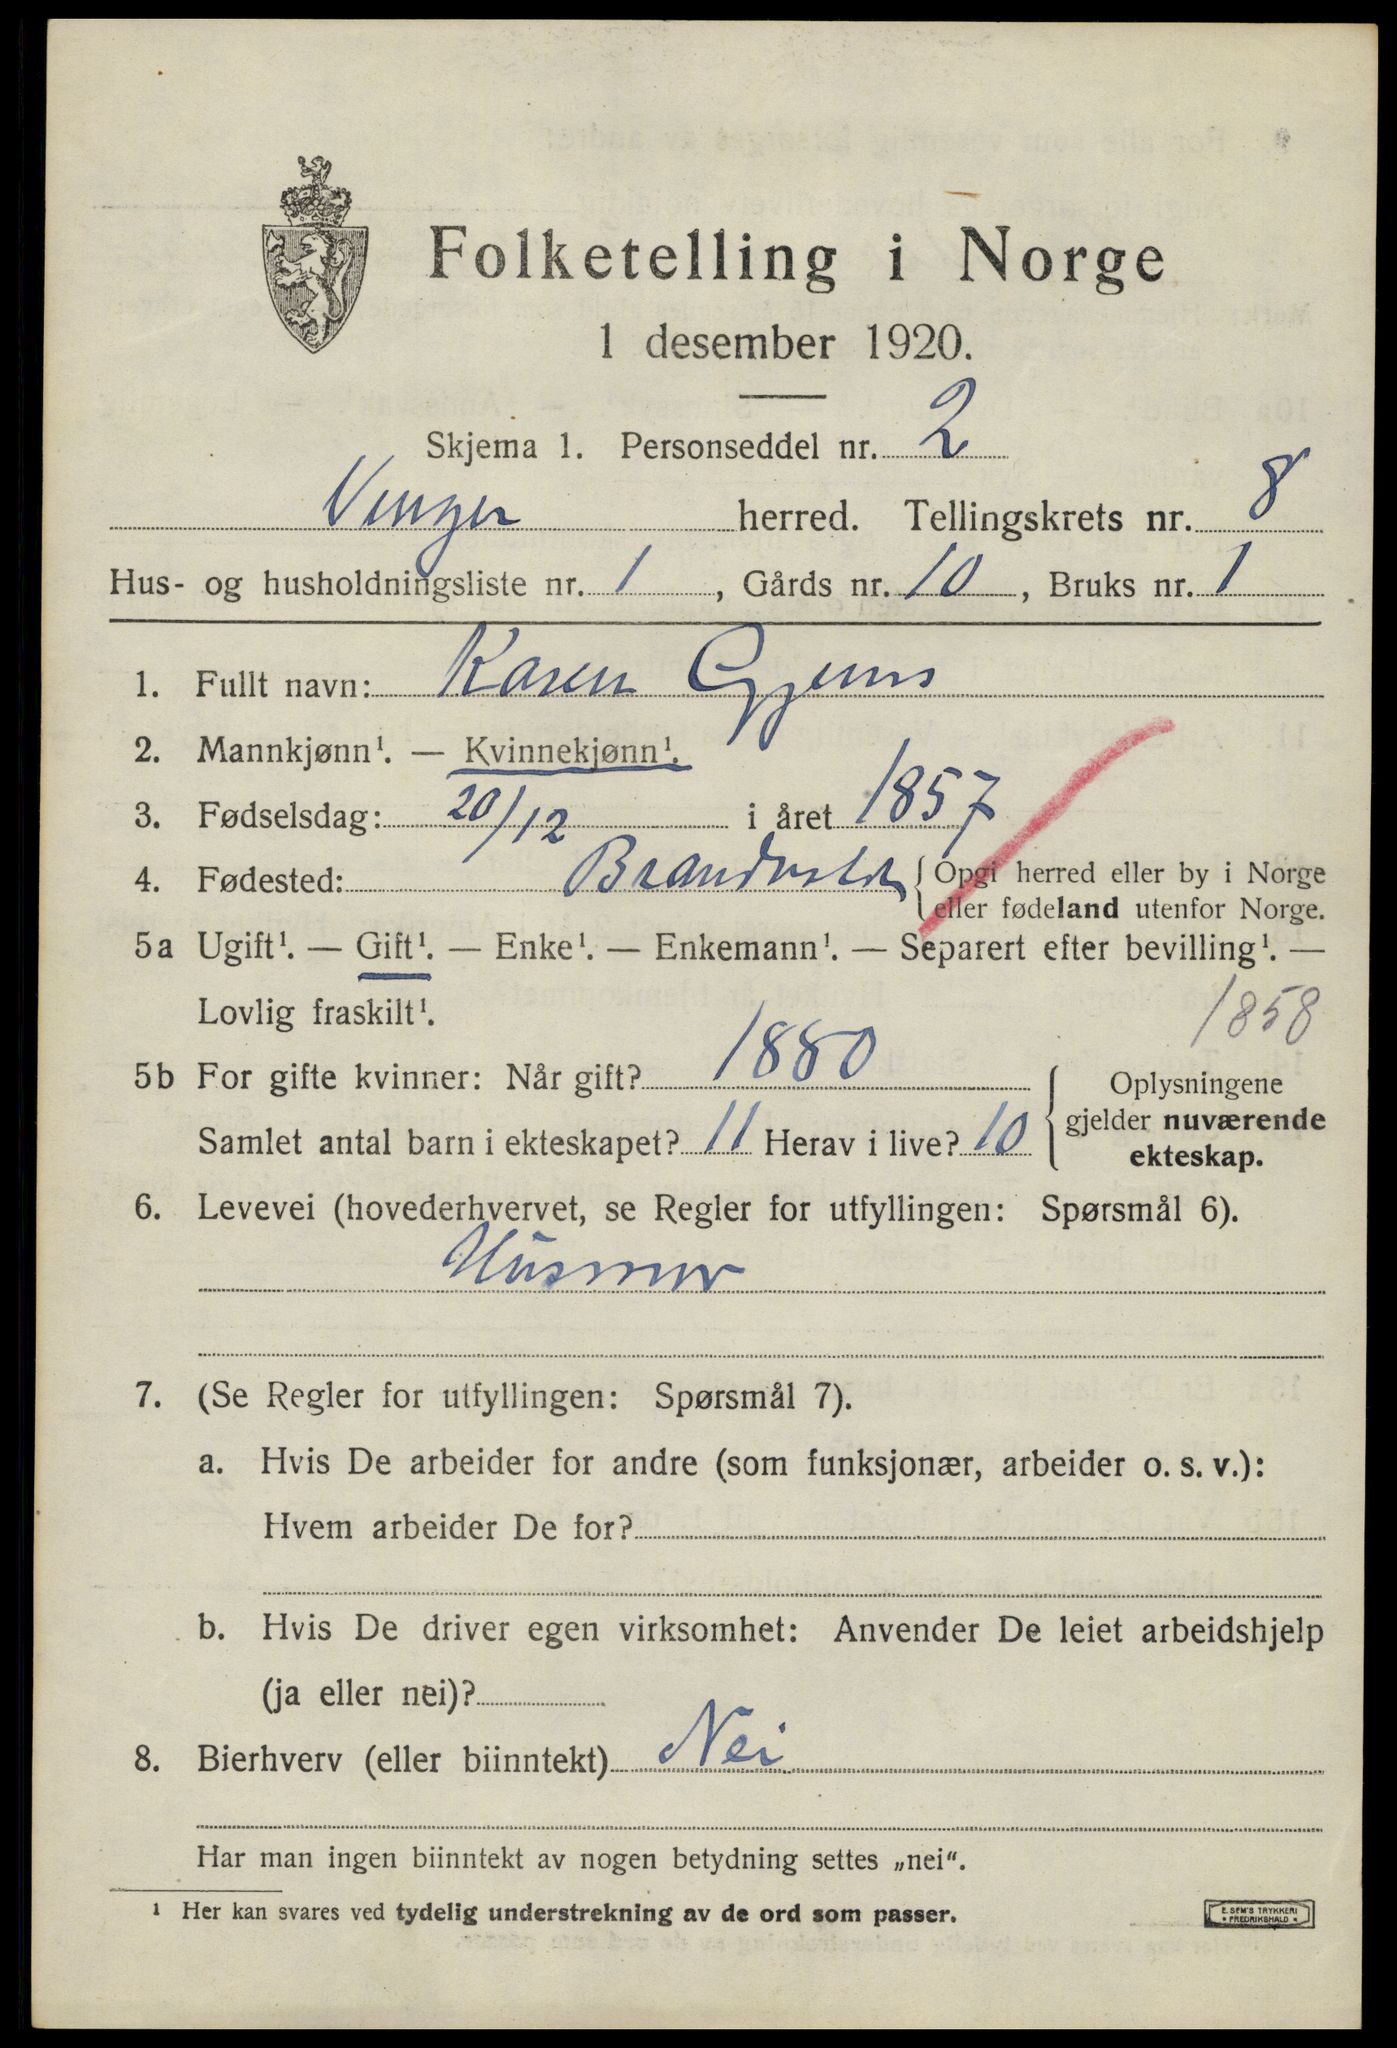 Folketelling i Norge
1 desember 1920.
Skjema 1. Personseddel nr. 2
Vinger herred. Tellingskrets nr. 8
Hus- og husholdningsliste nr. 1, Gårds nr. 10, Bruks nr. 1
1. Fullt navn: Karen Gjems
2. Mannkjønn¹. — Kvinnekjønn¹.
3. Fødselsdag: 20/12 i året 1857
4. Fødested: Brandvold {Opgi herred eller by i Norge
eller fødeland utenfor Norge.
5a Ugift¹. — Gift¹. — Enke¹. — Enkemann¹. — Separert efter bevilling¹. —
Lovlig fraskilt¹. 1858
5b For gifte kvinner: Når gift? 1880 Oplysningene
Samlet antal barn i ekteskapet? 11 Herav i live? 10 gjelder nuværende
ekteskap.
6. Levevei (hovederhvervet, se Regler for utfyllingen: Spørsmål 6).
Husmor
7. (Se Regler for utfyllingen: Spørsmål 7).
a. Hvis De arbeider for andre (som funksjonær, arbeider o. s. v.):
Hvem arbeider De for?
b. Hvis De driver egen virksomhet: Anvender De leiet arbeidshjelp
(ja eller nei)?
8. Bierhverv (eller biinntekt) Nei
Har man ingen biinntekt av nogen betydning settes „nei“.
¹ Her kan svares ved tydelig understrekning av de ord som passer.
E. SEM'S TRYKKERI
* FREDRIKSHALD *